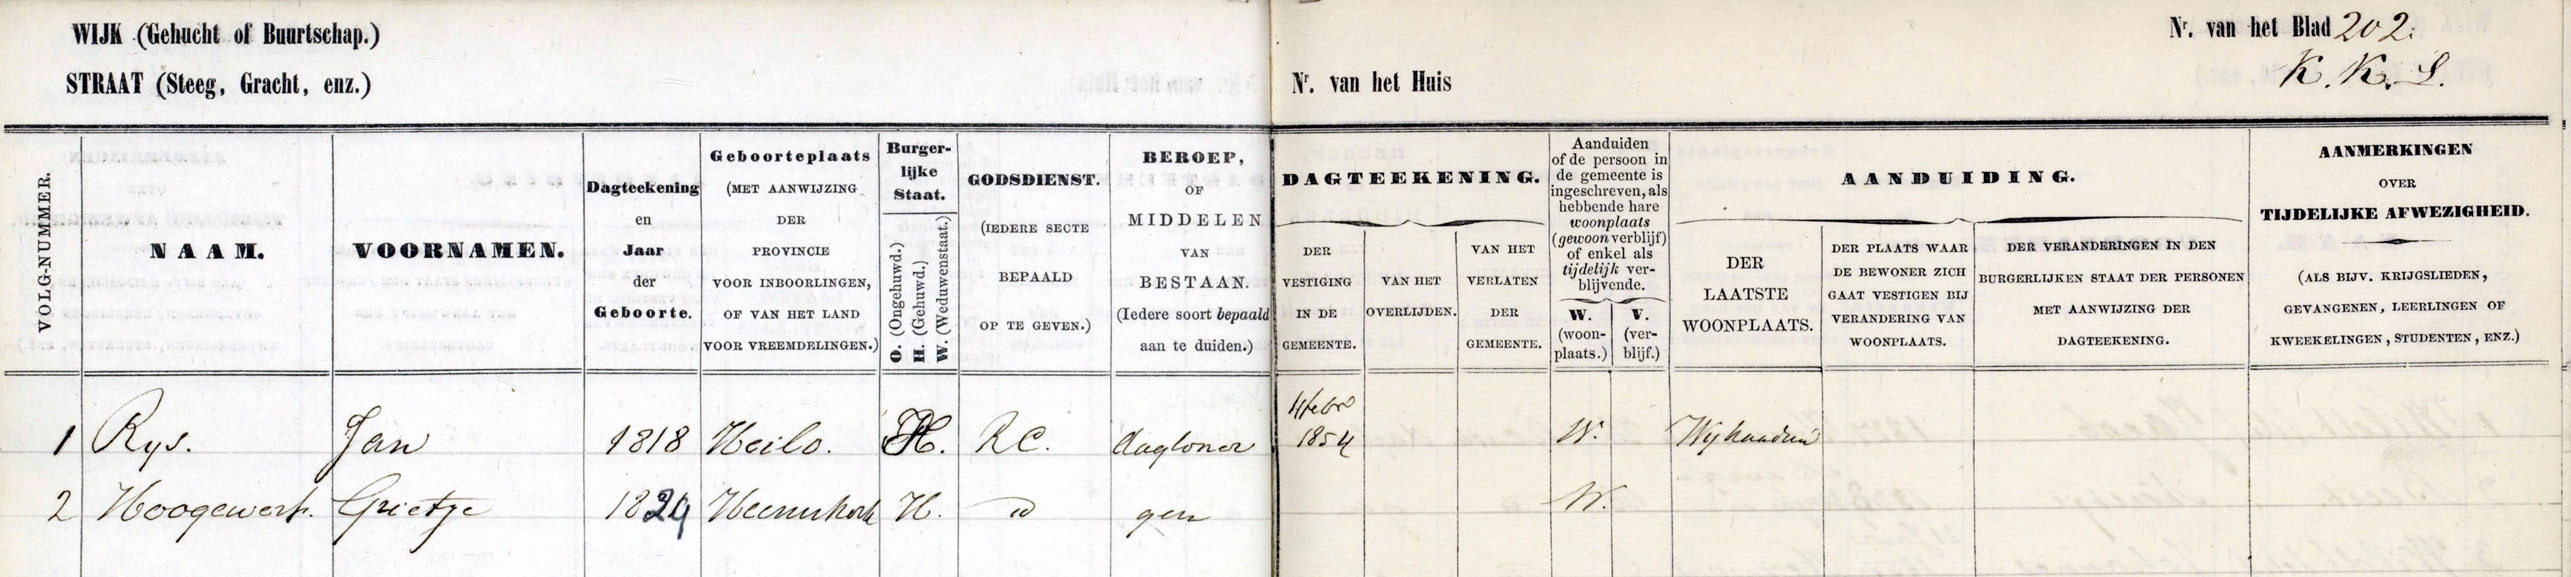 WIJK (Gehucht of Buurtschap.)
Nr. van het Blad 202.
STRAAT (Steeg, Gracht, enz.)
Nr. van het Huis
K. K. S.
VOLG-NUMMER.
NAAM.
VOORNAMEN.
Dagteekening
en
Jaar
der
Geboorte.
Geboorteplaats
(MET AANWIJZING
DER
PROVINCIE
VOOR INBOORLINGEN,
OF VAN HET LAND
VOOR VREEMDELINGEN.)
Burger-
lijke
Staat.
O. (Ongehuwd.)
H. (Gehuwd.)
W. (Weduwenstaat.)
GODSDIENST.
(IEDERE SECTE
BEPAALD
OP TE GEVEN.)
BEROEP,
OF
MIDDELEN
VAN
BESTAAN.
(Iedere soort bepaald
aan te duiden.)
DAGTEEKENING.
DER
VESTIGING
IN DE
GEMEENTE.
VAN HET
OVERLIJDEN.
VAN HET
VERLATEN
DER
GEMEENTE.
Aanduiden
of de persoon in
de gemeente is
ingeschreven, als
hebbende hare
woonplaats
(gewoon verblijf)
of enkel als
tijdelijk ver-
blijvende.
W.
(woon-
plaats.)
V.
(ver-
blijf.)
AANDUIDING.
DER
LAATSTE
WOONPLAATS.
DER PLAATS WAAR
DE BEWONER ZICH
GAAT VESTIGEN BIJ
VERANDERING VAN
WOONPLAATS.
DER VERANDERINGEN IN DEN
BURGERLIJKEN STAAT DER PERSONEN
MET AANWIJZING DER
DAGTEEKENING.
AANMERKINGEN
OVER
TIJDELIJKE AFWEZIGHEID.
(ALS BIJV. KRIJGSLIEDEN,
GEVANGENEN, LEERLINGEN OF
KWEEKELINGEN, STUDENTEN, ENZ.)
1 Rys. Jan 1818 Heilo. H. RC. dagloner 4 febro 1854 W.
2 Hoogewerf. Grietje 1829 Heemskerk H. id gen W.